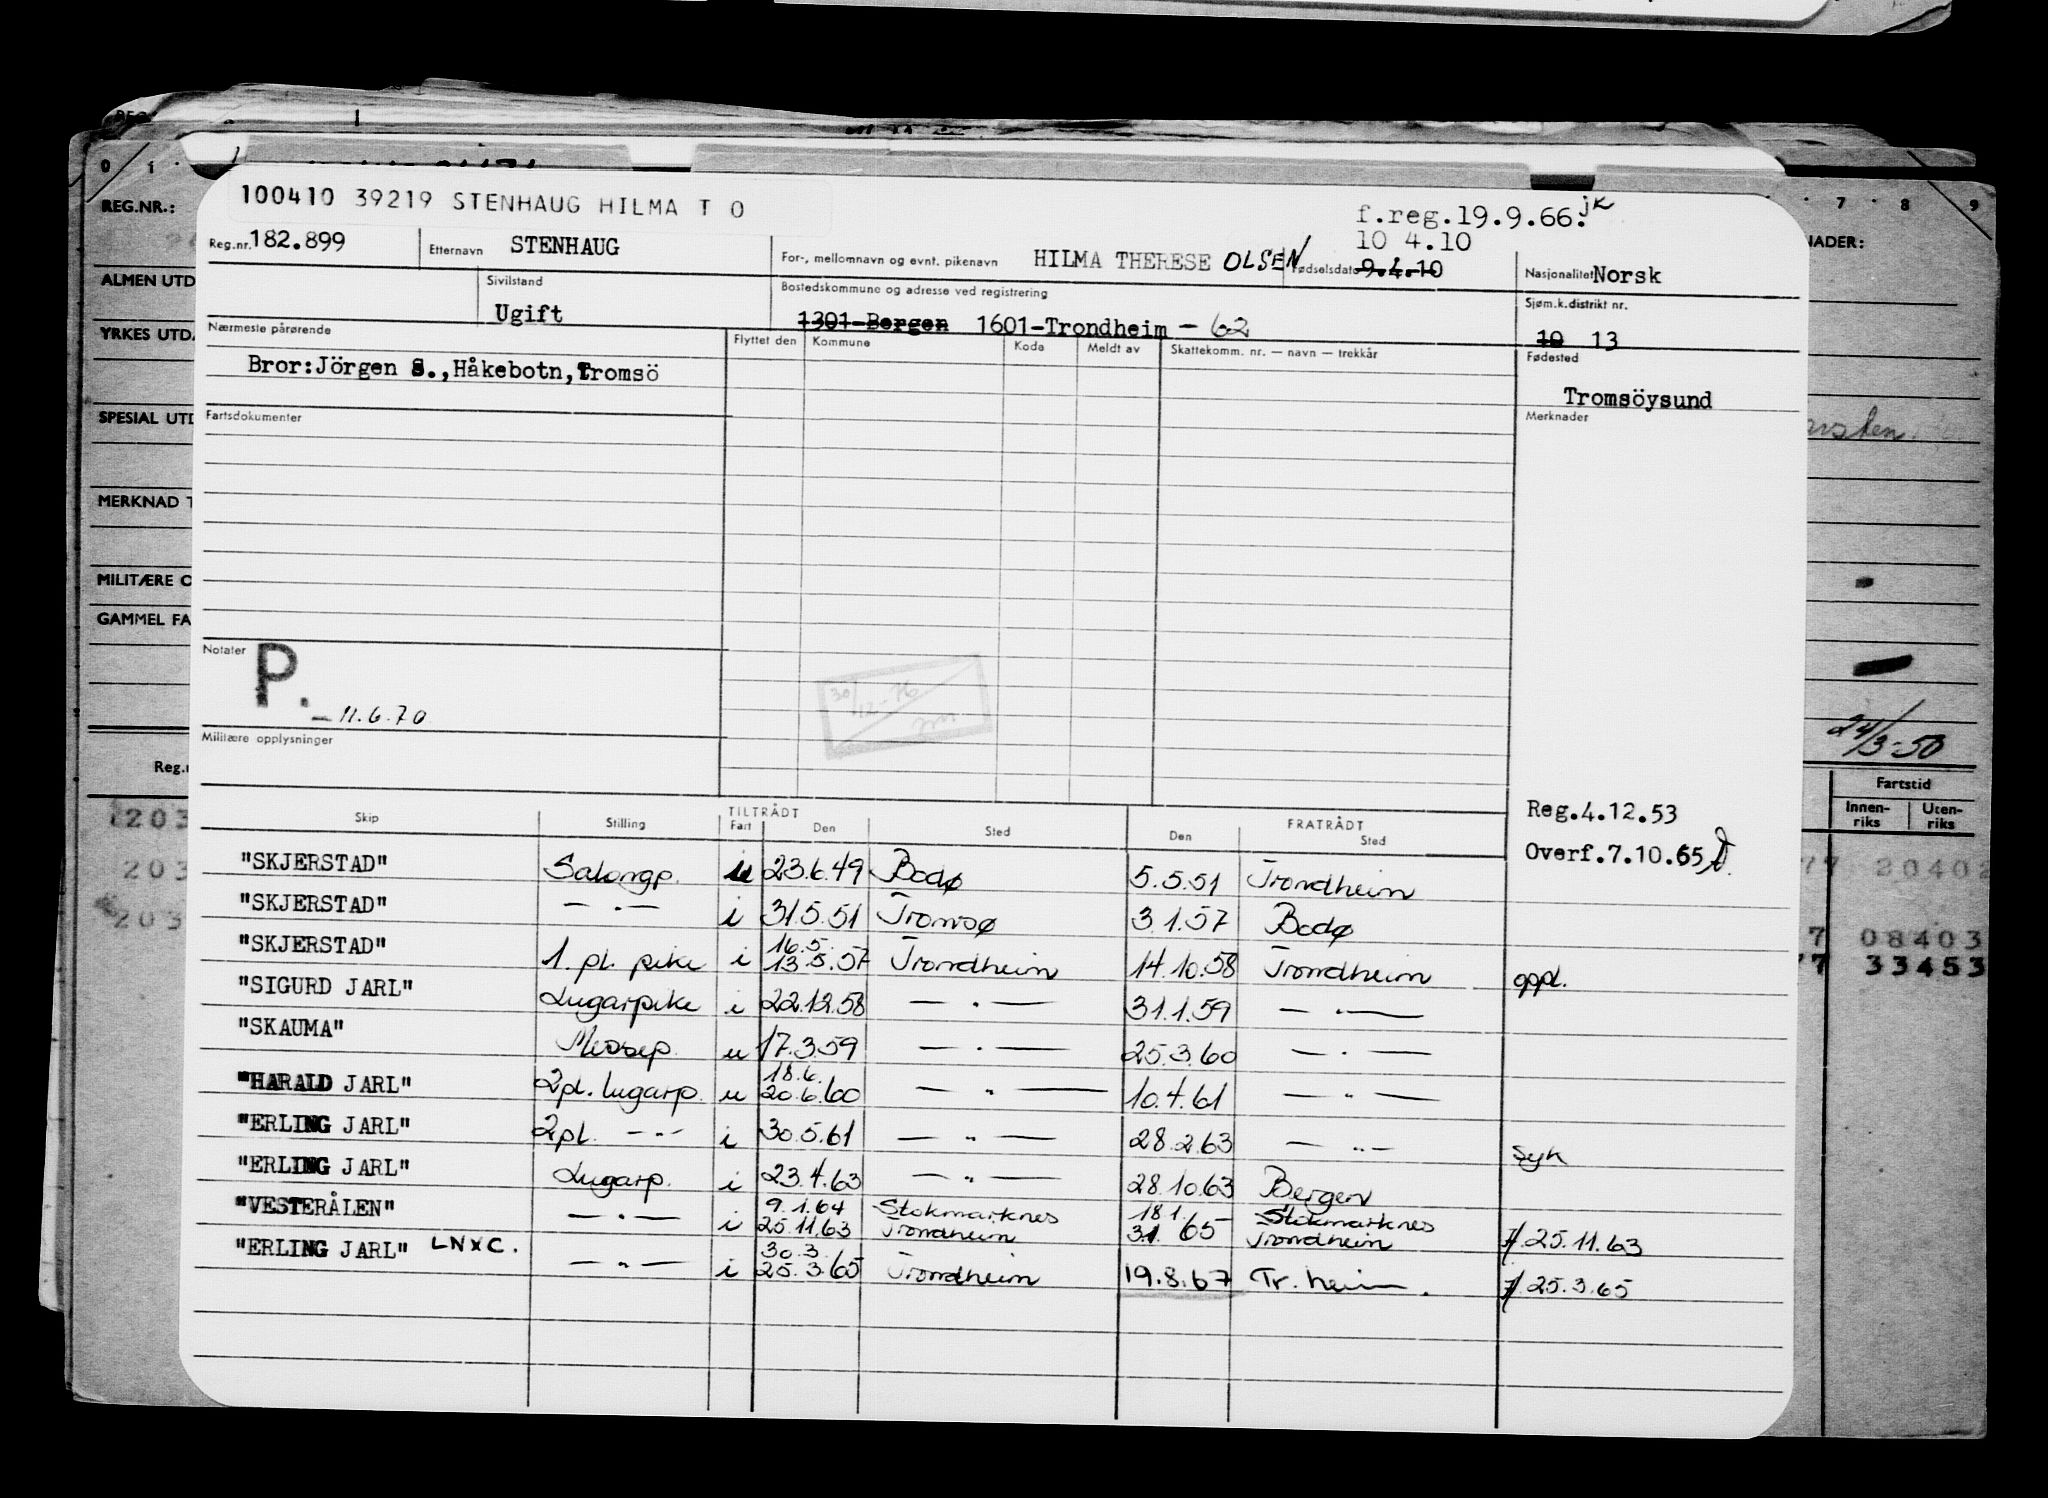 0 1 7 8 9
REG.NR.:
ALMEN UTD
YRKES UTDA
SPESIAL UTD
MERKNAD T
MILITÆRE O
GAMMEL FA
NADER:
24/3-50
Fartstid
Innen-riks Uten-riks
20402
7 08403
77 33453
100410 39219 STENHAUG HILMA T O
f.reg.19.9.66. jk
Reg.nr. 182.899 Etternavn STENHAUG For-, mellomnavn og evnt. pikenavn HILMA THERESE OLSEN Fødselsdato 10 4.10 9.4.10 Nasjonalitet Norsk
Sivilstand Ugift Bostedskommune og adresse ved registrering 1301-Bergen 1601-Trondheim - 62 Sjøm.k.distrikt nr. 10 13
Nærmeste pårørende Flyttet den Kommune Kode Meldt av Skattekomm. nr. — navn — trekkår Fødested
Bror:Jörgen S.,Håkebotn,Tromsö Tromsöysund
Fartsdokumenter Merknader
Notater
P. - 11.6.70
30/12-76
Militære opplysninger
Reg.4.12.53
Overf.7.10.65
Skip Stilling TILTRÅDT Fart Den Sted FRATRÅDT Den Sted
"SKJERSTAD" Salongp. 23.6.49 Bodø 5.5.51 Trondheim
"SKJERSTAD" — . — i 31.5.51 Tromsø 3.1.57 Bodø
"SKJERSTAD" 1. pl. pike i 16.5. 13.5.57 Trondheim 14.10.58 Trondheim oppl.
"SIGURD JARL" Lugarpike i 22.12.58 — . — 31.1.59 — . —
"SKAUMA" Messep. u 17.3.59 — . — 25.3.60 — . —
"HARALD JARL" 2pl. lugarp. u 18.6. 20.6.60 — " — 10.4.61 — " —
"ERLING JARL" 2pl. — " — i 30.5.61 — " — 28.2.63 — " — syk
"ERLING JARL" Lugarp. i 23.4.63 — " — 28.10.63 Bergen
"VESTERÅLEN" — . — i 9.1.64 25.11.63 Stokmarknes Trondheim 18 1 31 65 Stokmarknes Trondheim 25.11.63
"ERLING JARL" LNXC. — " — i 30.3. 25.3.65 Trondheim 19.8.67 Tr.heim. 25.3.65